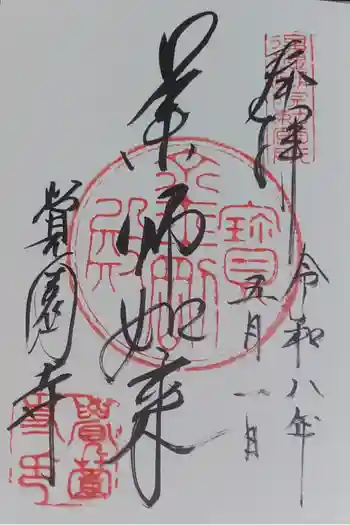 奉拝
令和八年
五月一日
薬師如来
覚園寺